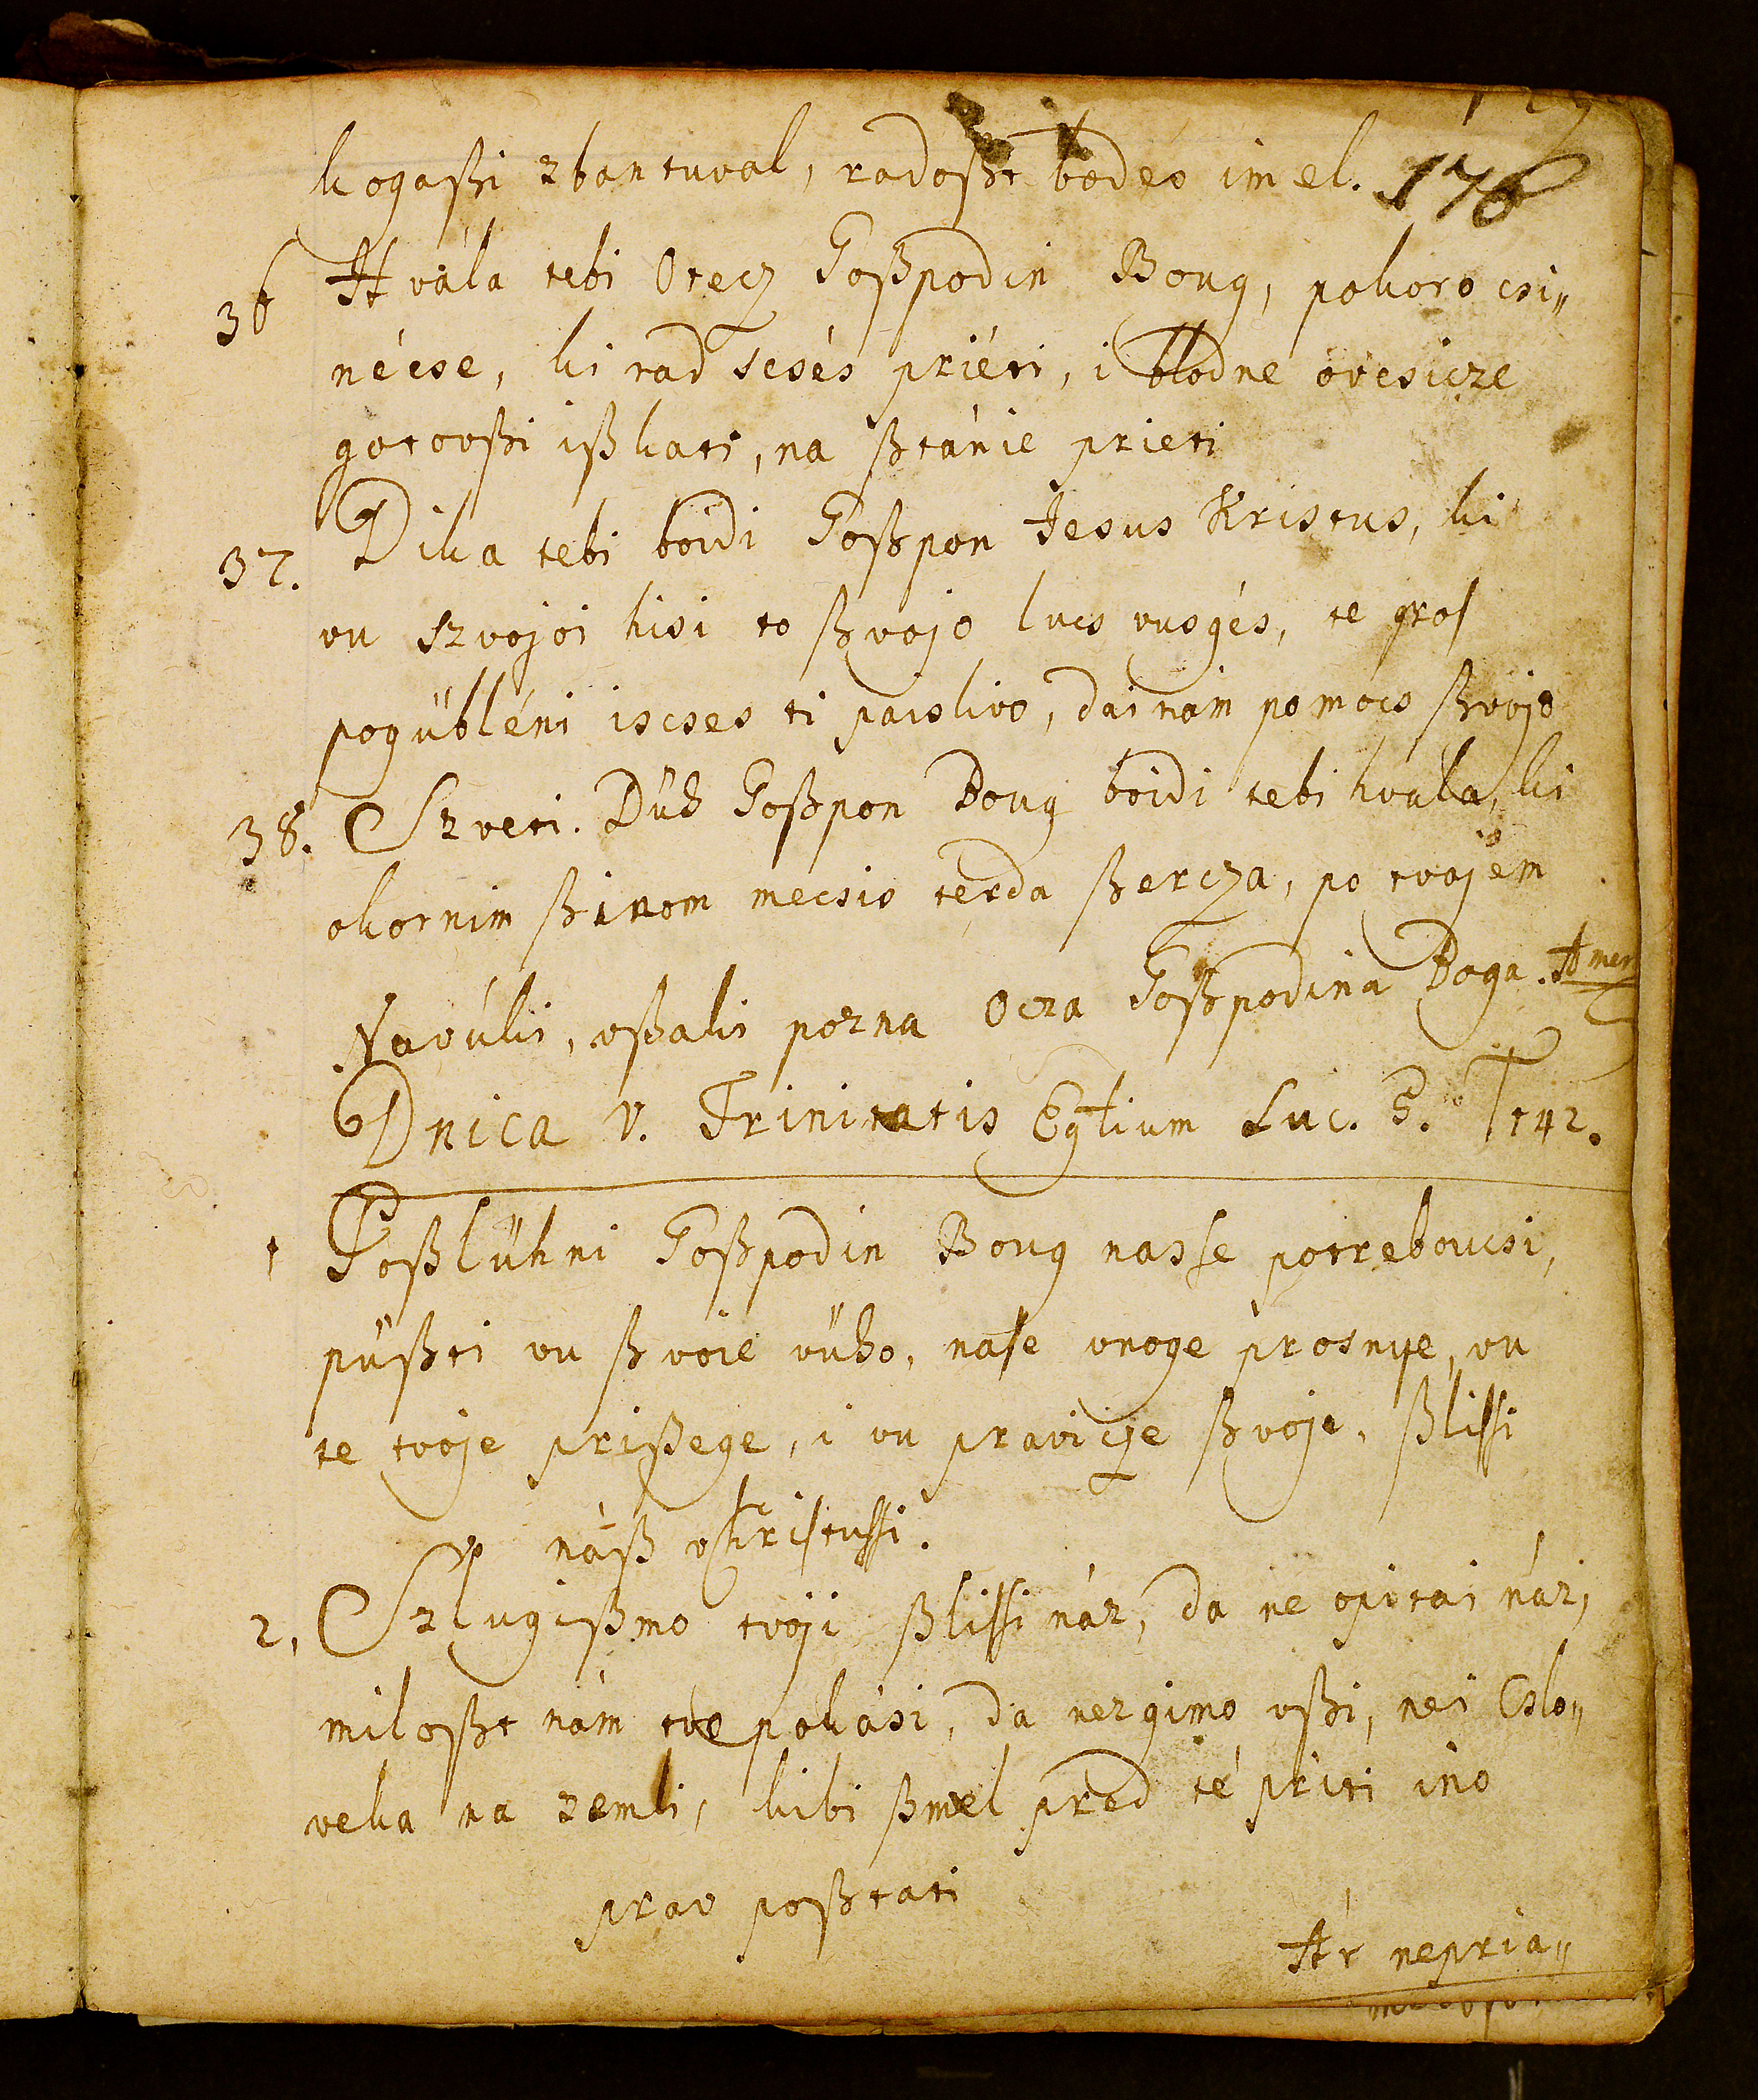 kogaßi zbantuval, radoßt bodes imel. 176
36 Hvála tebi Otecz Goßpodin Boug, pokoro csi„
nécse, ki rad scsés priéti, i blodne óvcsicze
gotovßi ißkati, na ßtánie prieti
37. Dika tebi boidi Goßpon Jesus Kristus, ki
vu szvojoi hisi to ßvojo lucs vusgés, te gros
pogübléni iscses ti paislivo, dai nam pomocs ßvojo
38. Szveti. Düh Goßpon Boug boidi tebi hvala, ki
okornim ßinom mecsis terda ßercza, po tvojem
Navúki, vßaki pozna Ocza Goßpodina Boga. Amen
Dnica V. Trinitatis Eglium Luc. 5. T 142.
1 Poßlühni Goßpodin Boug nasse potreboucsi,
püßti vu ßvoie vüho, nase vnoge prosnye, vu
te tvoje prißege, i vu pravicze ßvoje, ßlissi
náß v Kristussi.
2, Szlugißmo tvoji ßlissi náz, da ne opitai náz,
miloßt nám tve pokási, da nezgimo vßi, nei Cslo„
veka na zemli, kibi ßmel pred té priti ino
prav poßtati
Ár nepria„